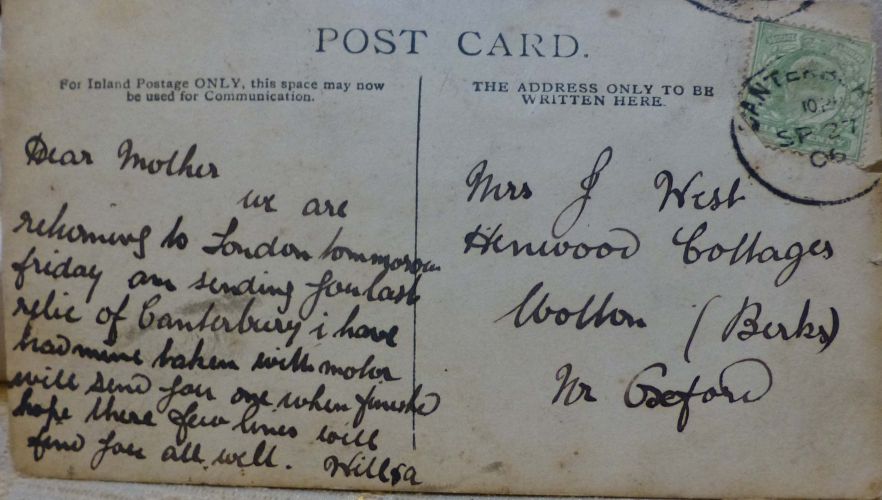 POST CARD.
For Inland Postage ONLY, this space may now
be used for Communication.
THE ADDRESS ONLY TO BE
WRITTEN HERE.
CANTERBURY
SP 27
06
Dear Mother
we are
returning to London tommorow
friday am sending you last
relic of Canterbury i have
had mine taken with motor
will send you one when finished
hope these few lines will
find you all well.
Mrs J West
Henwood Cottages
Wotton (Berks)
Nr Oxford